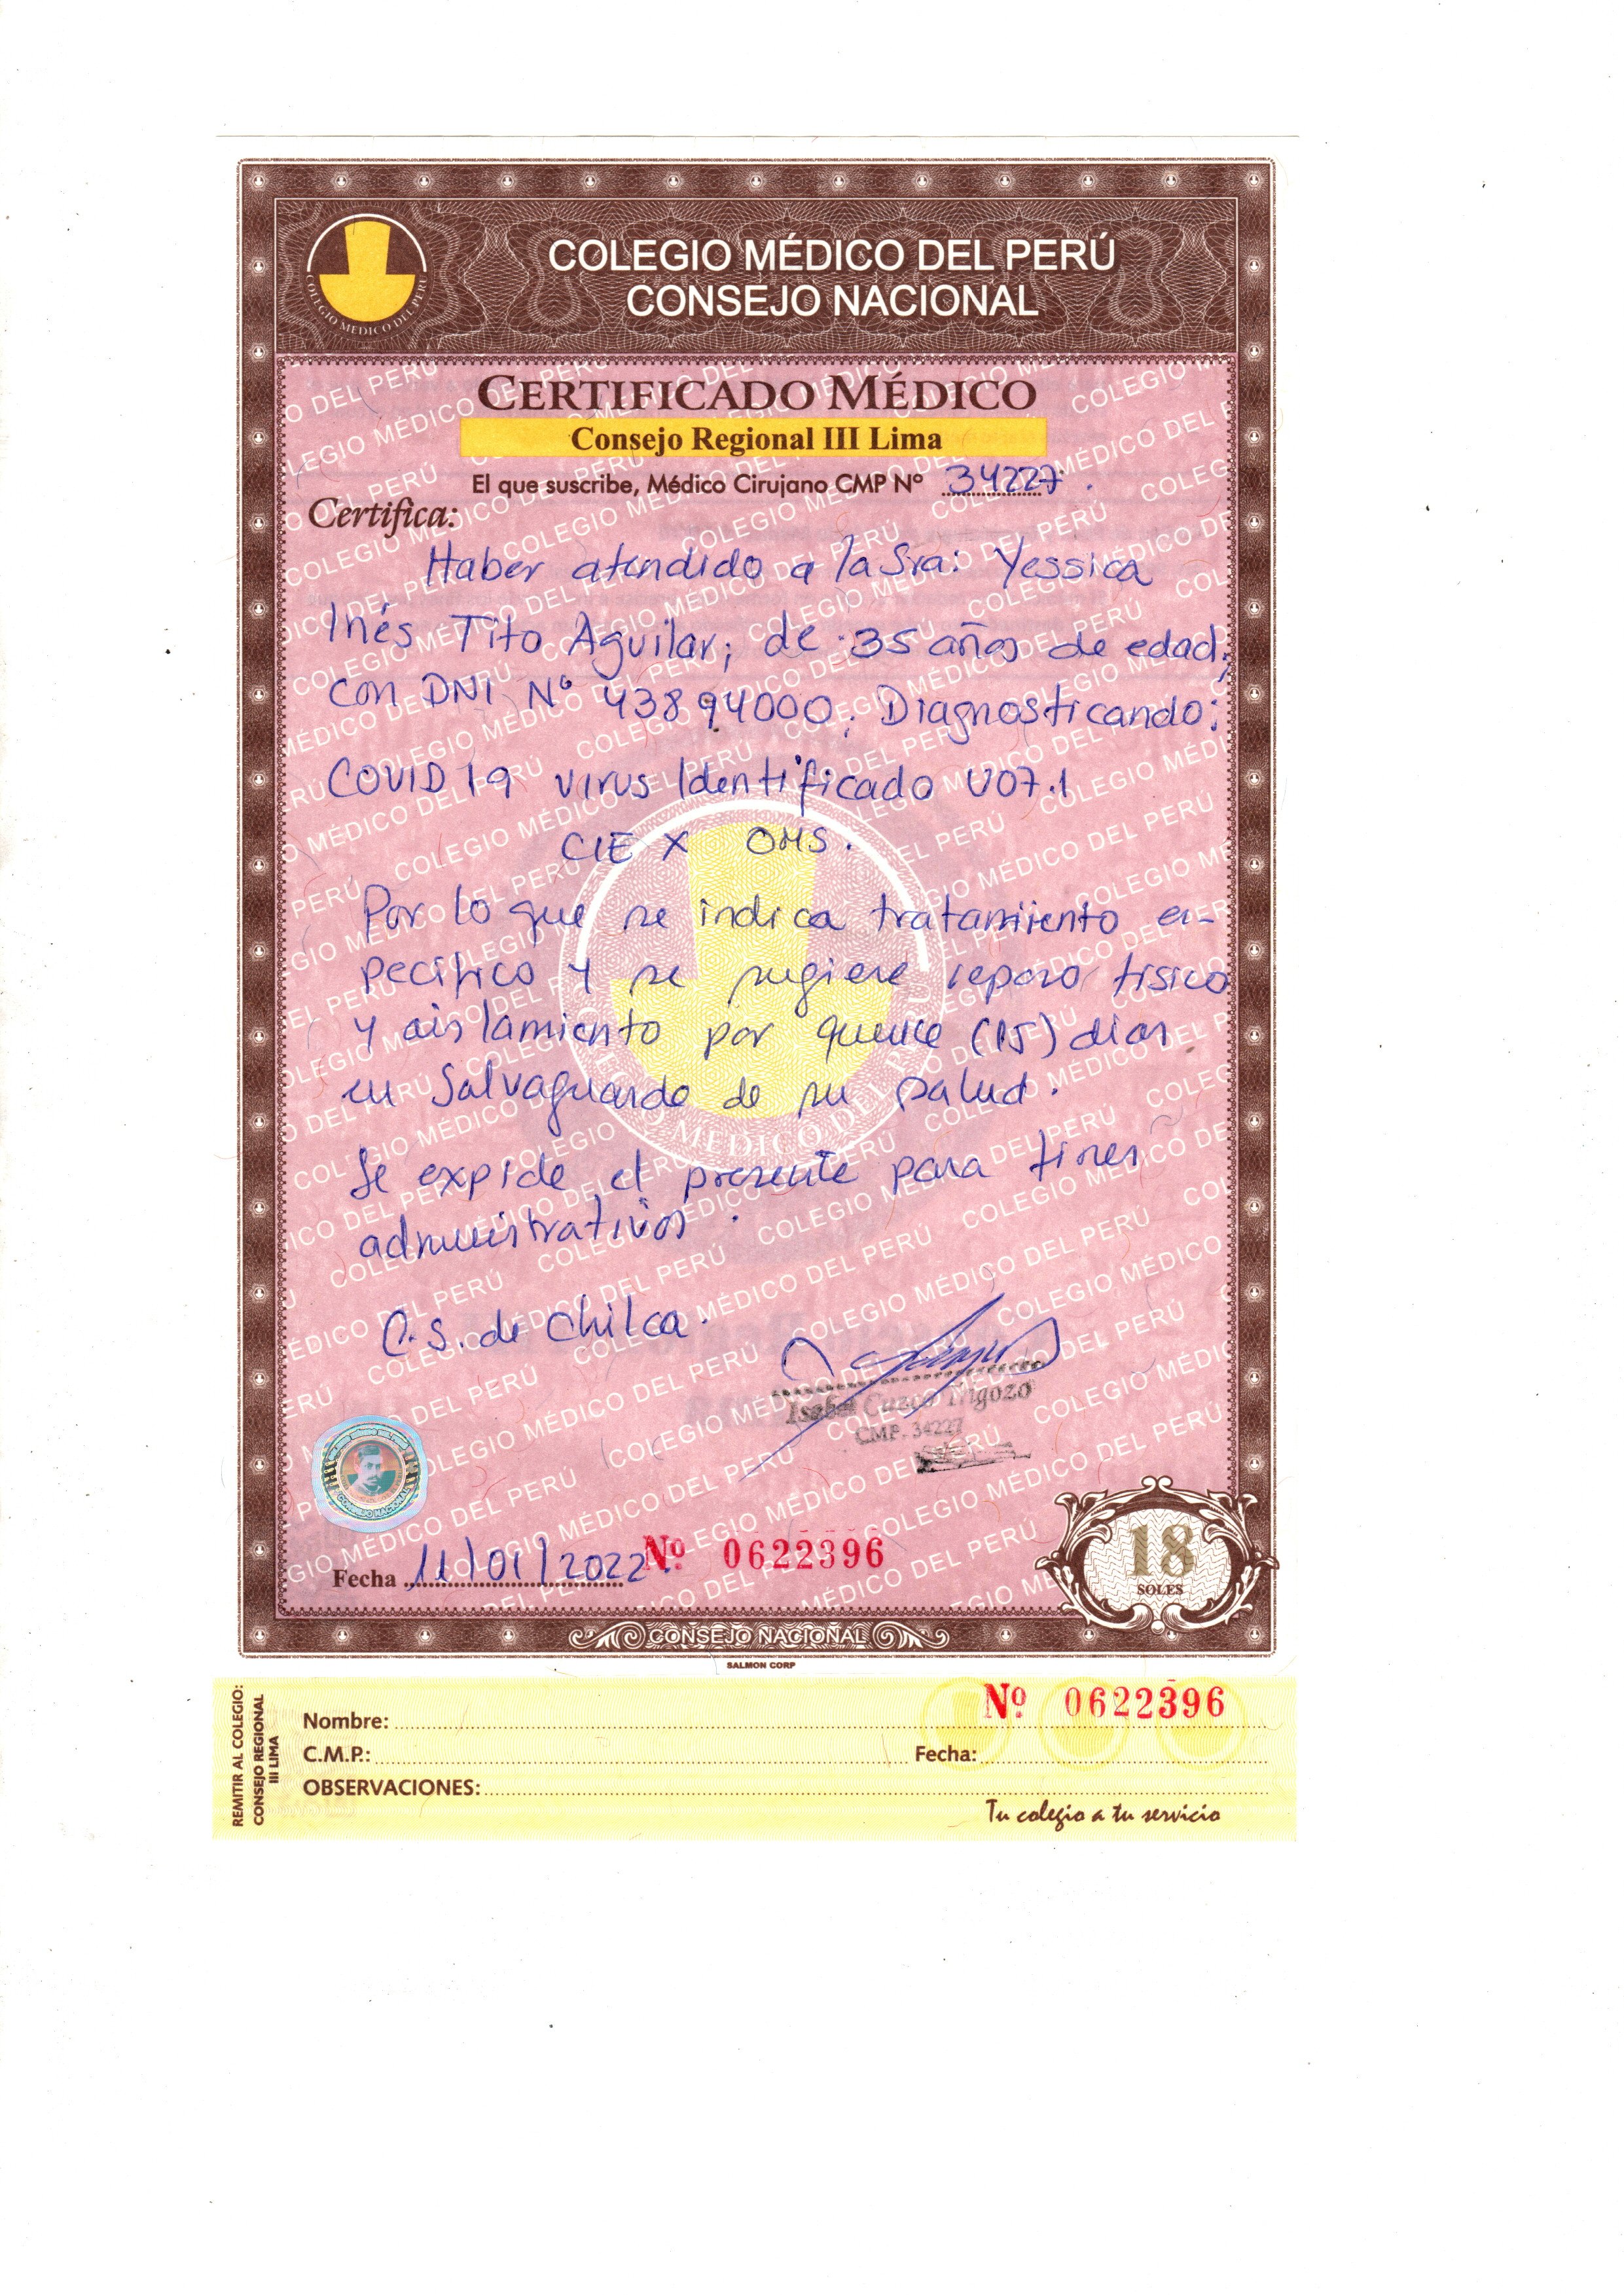 COLEGIO MÉDICO DEL PERÚ
CONSEJO NACIONAL
COLEGIO MEDICO DEL PERU
CERTIFICADO MÉDICO
Consejo Regional III Lima
El que suscribe, Médico Cirujano CMP Nº 34227.
Certifica:
Haber atendido a la Sra: Yessica
Inés Tito Aguilar; de 35 años de edad;
con DNI Nº 43894000; Diagnosticando:
COVID 19 virus Identificado U07.1
CIE X OMS.
Por lo que se indica tratamiento es-
pecífico y se sugiere reposo físico
y aislamiento por quince (15) días
en Salvaguarda de su salud.
Se expide el presente para fines
administrativos.
C.S. de Chilca.
Isabel Cuzco Trigozo
CMP. 34227
Fecha 11/01/2022. Nº 0622396
18
SOLES
CONSEJO NACIONAL
SALMON CORP
REMITIR AL COLEGIO:
CONSEJO REGIONAL
III LIMA
Nº 0622396
Nombre:
C.M.P.: Fecha:
OBSERVACIONES:
Tu colegio a tu servicio